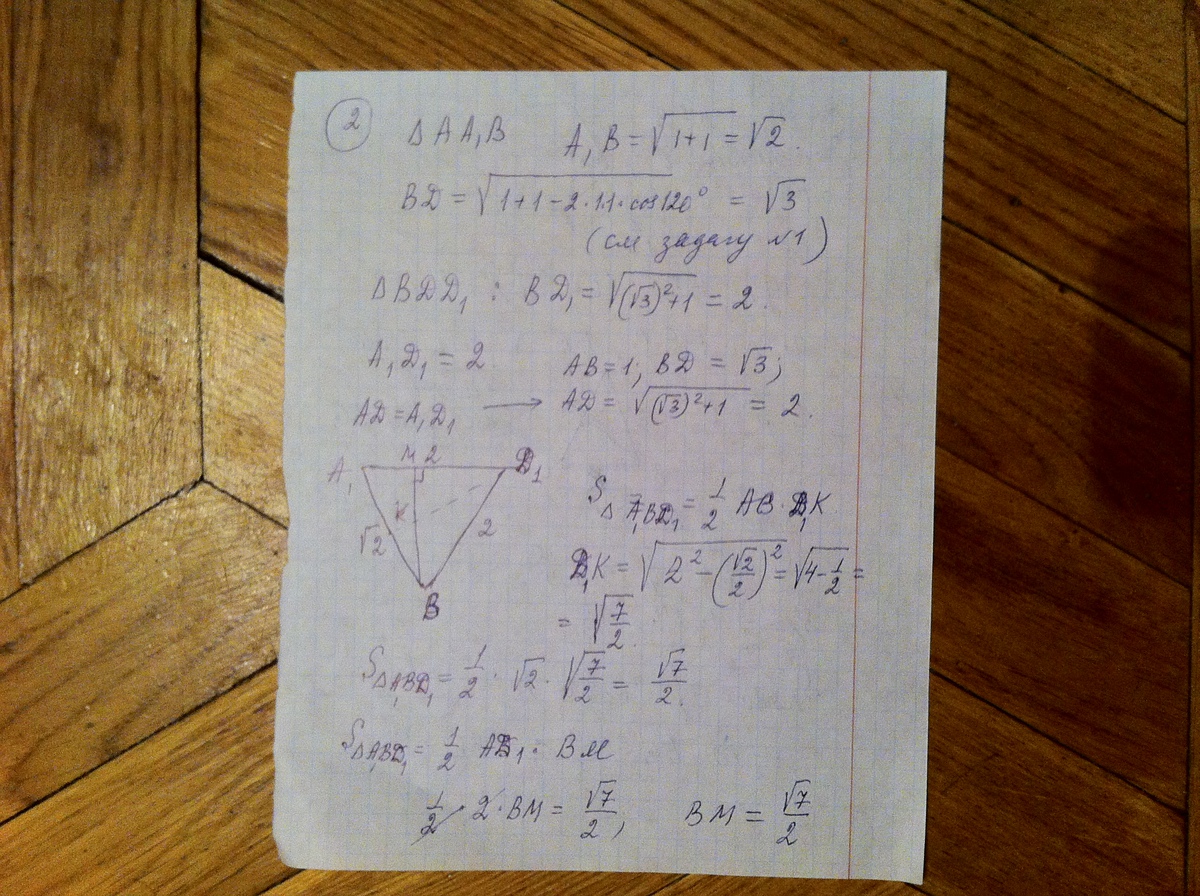 2
△AA₁B A₁B = √(1+1) = √2.
BD = √(1+1-2·1·1·cos120° = √3
(см задачу №1)
△BDD₁ : BD₁ = √((√3)²+1) = 2.
A₁D₁ = 2 AB = 1; BD = √3;
AD = A₁D₁ → AD = √((√3)²+1) = 2.
A₁ M 2 D₁
K
√2 2
B
S△A₁BD₁ = 1/2 AB · D₁K
D₁K = √(2² - (√2/2)²) = √(4 - 1/2) =
= √(7/2).
S△A₁BD₁ = 1/2 · √2 · √(7/2) = √7/2.
S△A₁BD₁ = 1/2 AD₁ · BM
1/2 · 2 · BM = √7/2, BM = √7/2